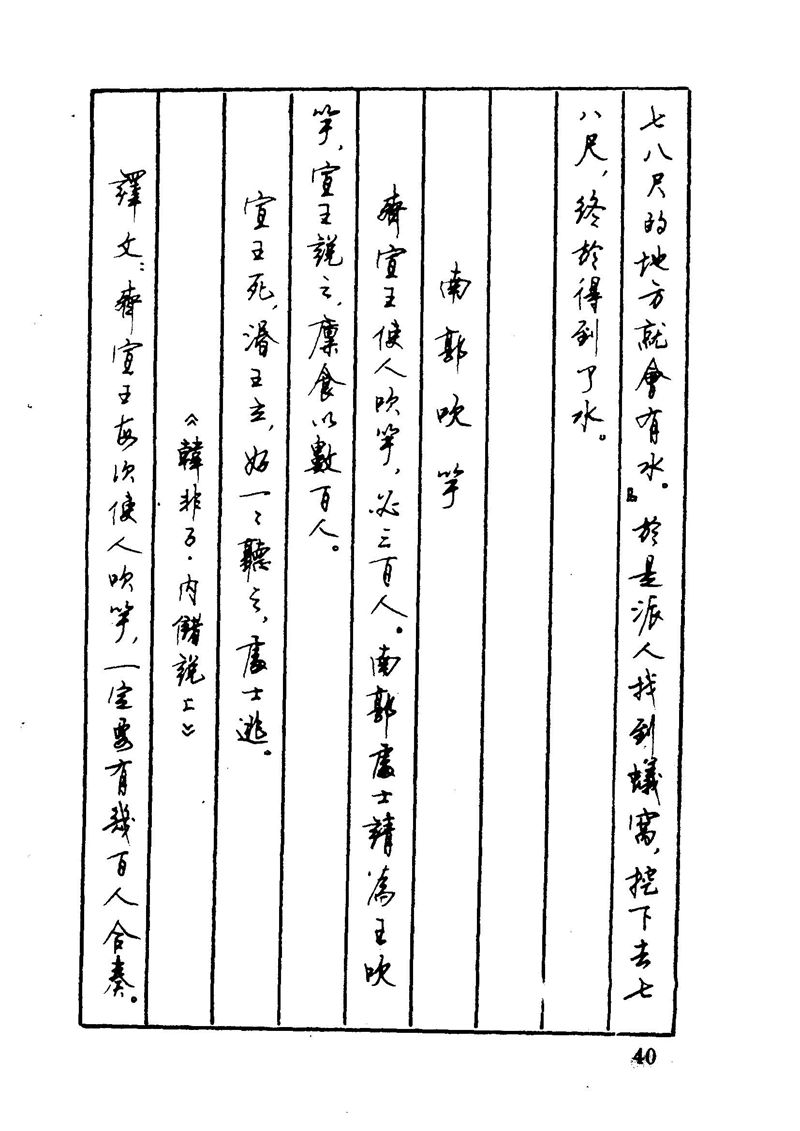 七八尺的地方就會有水。』於是派人找到蟻窩，挖下去七
八尺，終於得到了水。
南郭吹竽
齊宣王使人吹竽，必三百人。南郭處士請為王吹
竽，宣王說之，廩食以數百人。
宣王死，湣王立，好一々聽之，處士逃。
《韓非子·內儲說上》
譯文：齊宣王每次使人吹竽，一定要有幾百人合奏。
40